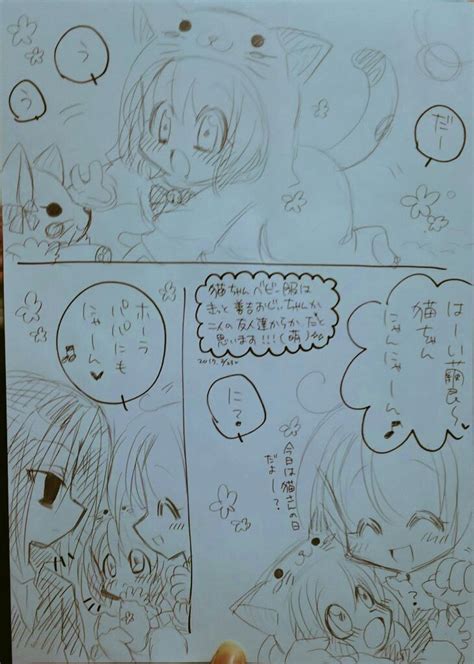 だー
う
う
はーい 繭良〜
猫ちゃん
にゃんにゃーん♪
猫ちゃんベビー服は
きっと善吉おじいちゃんか
二人の友人達からかだと
思います!!!(萌
に?
今日は猫さんの日
だよー?
?
ホーラ
パパにも
にゃーん♥